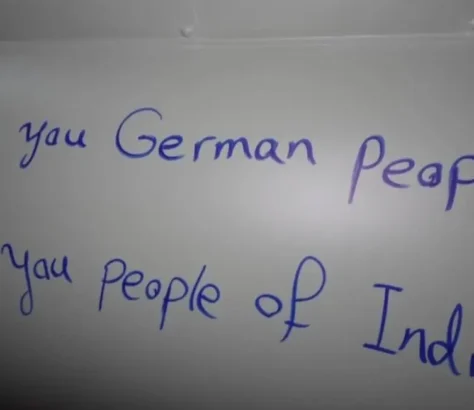 you German Peop
you people of Ind